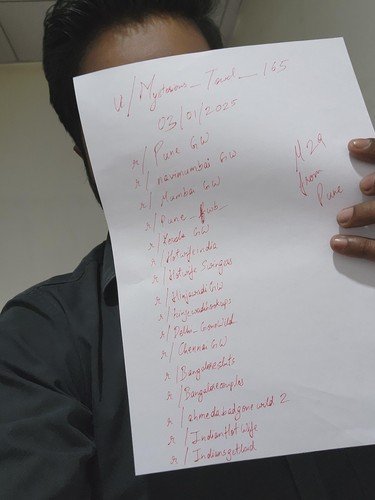 u/Mysterious_Towel_165
03/01/2025
r/Pune GW
r/navimumbai GW
r/Mumbai GW
r/Pune_
r/Kerala GW
r/Hotwifeindia
r/Hotwife Swingers
r/Hinjewadi GW
r/
r/Delhi_GoneWild
r/Chennai GW
r/Bangaloresluts
r/Bangalorecouples
r/ahmedabadgonewild 2
r/IndianHotwife
r/Indiansgetlaid
M 29
from
Pune